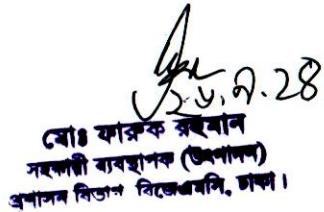 ২৬.৯.২৪
মোঃ ফারুক রহমান
সহকারী ব্যবস্থাপক (উৎপাদন)
প্রশাসন বিভাগ বিজেএমসি, ঢাকা।